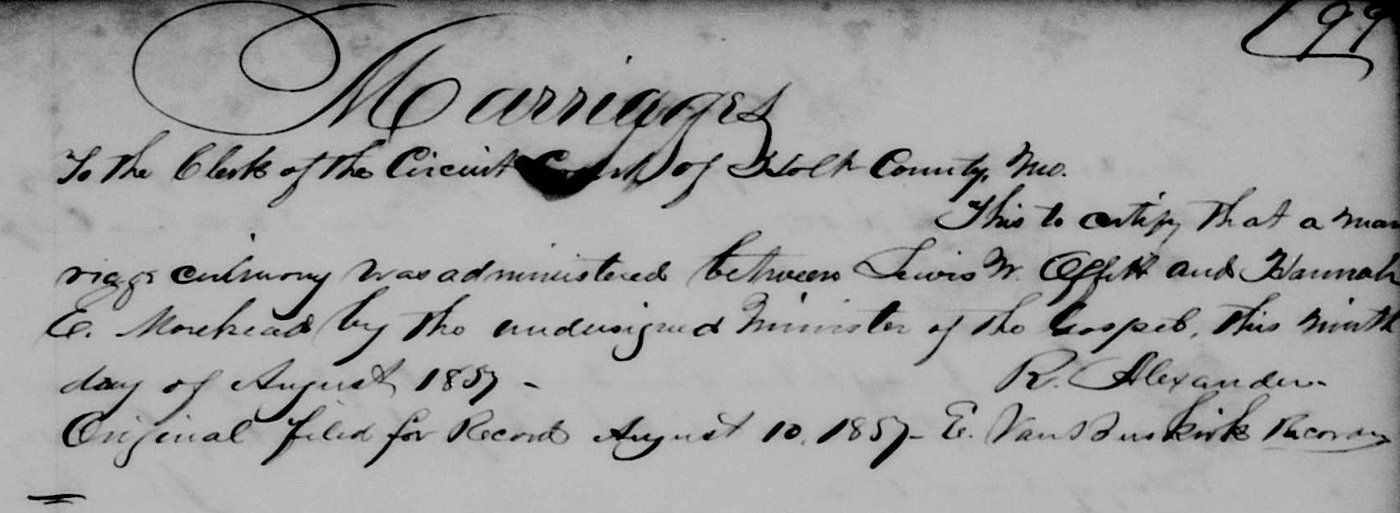 199
Marriages
To the Clerk of the Circuit Court of Holt County, Mo.
This to certify that a mar
riage cerimony was administered between Lewis W. Offitt and Hannah
E. Morehead by the undersigned Minister of the Gospel, this ninth
day of August 1857 - R. Alexander
Original filed for Record August 10, 1857 - E. Van Buskirk Recorder